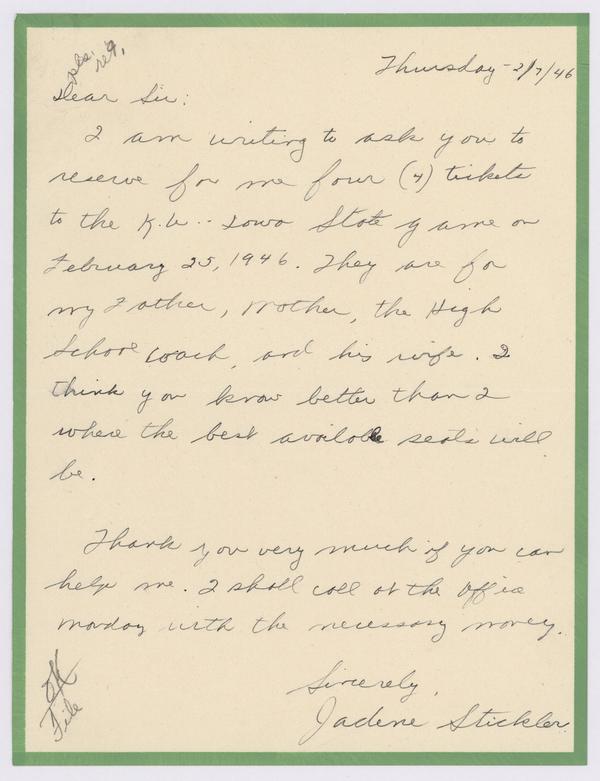 Thursday - 2/7/46
Dear Sir:
I am writing to ask you to
reserve for me four (4) tickets
to the K.U. - Iowa State game on
February 25, 1946. They are for
my Father, Mother, the High
School coach, and his wife. I
think you know better than I
where the best available seats will
be.
Thank you very much if you can
help me. I shall call at the office
Monday with the necessary money.
Sincerely,
Jadene Stickler
OK
File